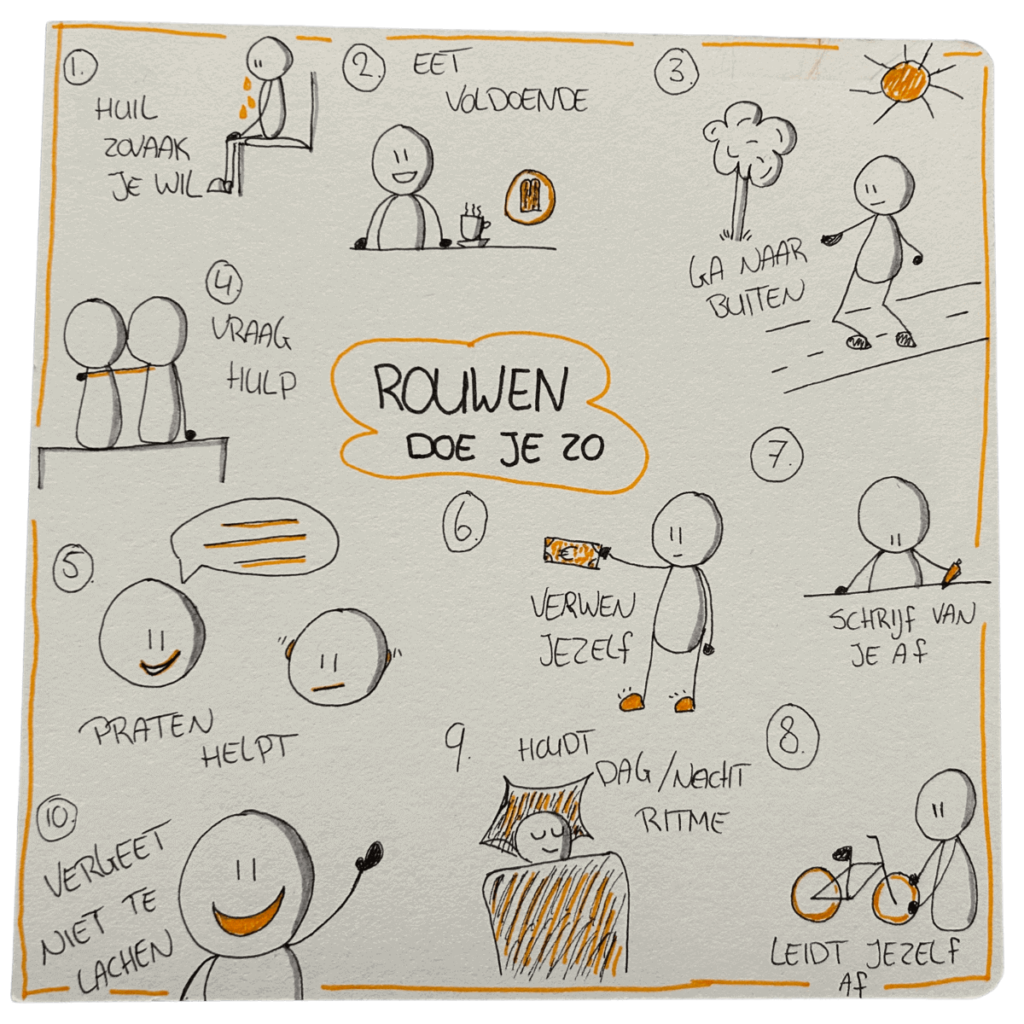 1.
HUIL
ZOVAAK
JE WIL
2.
EET
VOLDOENDE
3.
GA NAAR
BUITEN
4.
VRAAG
HULP
ROUWEN
DOE JE ZO
5.
PRATEN
HELPT
6.
€
VERWEN
JEZELF
7.
SCHRIJF VAN
JE AF
8.
LEIDT JEZELF
AF
9.
HOUDT
DAG/NACHT
RITME
10.
VERGEET
NIET TE
LACHEN